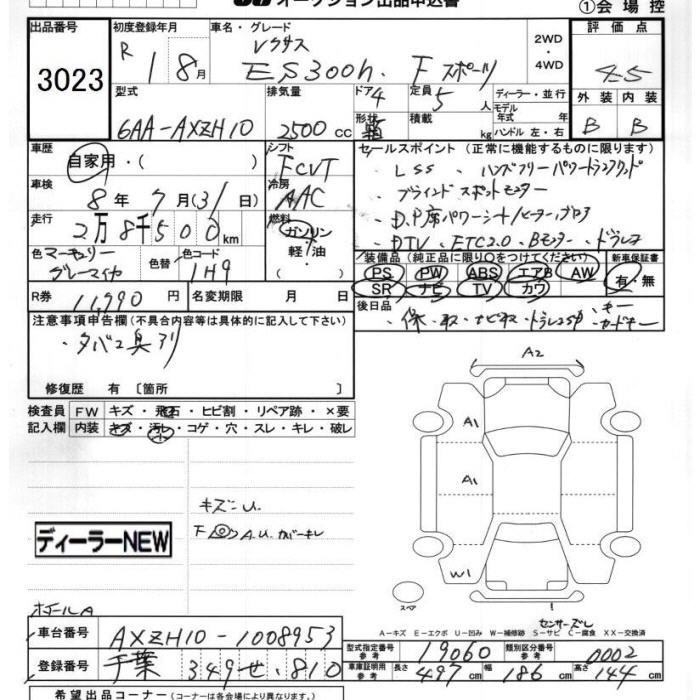 オークション出品申込書
①会場控
出品番号
3023
初度登録年月
R 1 8月
車名・グレード
レクサス
ES300h. Fスポーツ
2WD
・
4WD
評価点
4.5
外装 内装
B B
型式
6AA-AXZH10
排気量
2500cc
ドア 4
形状
定員 5人
積載 kg
ディーラー・並行
モデル年式 年
ハンドル 左・右
車歴
自家用・( )
シフト
FCVT
車検
8年7月(31日)
冷房
AAC
走行
2万8千500km
燃料
ガソリン
・
軽油
色 マーキュリー
グレーマイカ
色替
色コード
1H9
R券 11,990円
名変期限 月 日
セールスポイント (正常に機能するものに限ります)
・LSS ・ハンズフリーパワートランクリッド
・ブラインドスポットモニター
・D.P席パワーシート/ヒーター,ブロア
・DTV.ETC2.0.Bモニター.ドラレコ
装備品(純正品に限り○をつけてください)
PS PW ABS エアB AW
SR ナビ TV カワ
新車保証書
有・無
後日品
・保・取・ナビ取・ドラレコSD・キー
・カードキー
注意事項申告欄(不具合内容等は具体的に記入して下さい)
・タバコ臭アリ
修復歴 有 〔箇所 〕
検査員
記入欄
FW キズ・飛石・ヒビ割・リペア跡・×要
内装 キズ・汚レ・コゲ・穴・スレ・キレ・破レ
キズ=U.
ディーラーNEW
ホイールA
A2
A1
A1
W1
スペア
センサーズレ
A－キズ E－エクボ U－凹み W－補修跡 S－サビ C－腐食 XX－交換済
車台番号 AXZH10-1008953
登録番号 千葉 349 せ・810
型式指定番号
参考
19060
類別区分番号
参考
0002
車庫証明用
参考
長さ 497cm 幅 186cm 高さ 144cm
希望出品コーナー(コーナーは各会場により異なります)